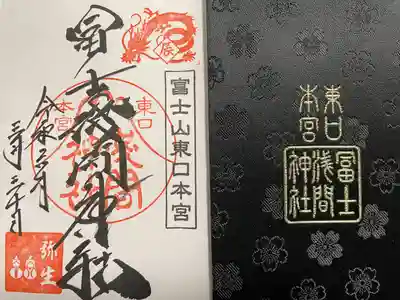 辰
富士山東口本宮
東口
本宮
冨士浅間神社
令和六年
三月三十日
弥生
東口
本宮
冨士
浅間
神社